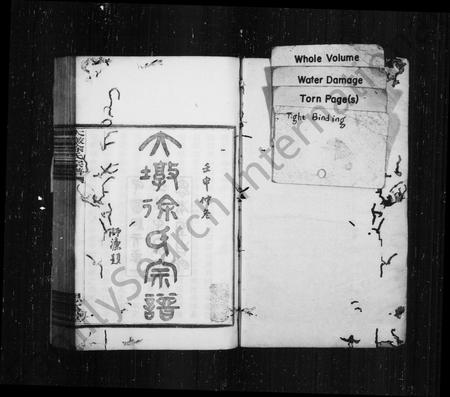 Whole Volume
Water Damage
Torn Page(s)
Tight Binding
壬申仲春
大墩徐氏宗譜